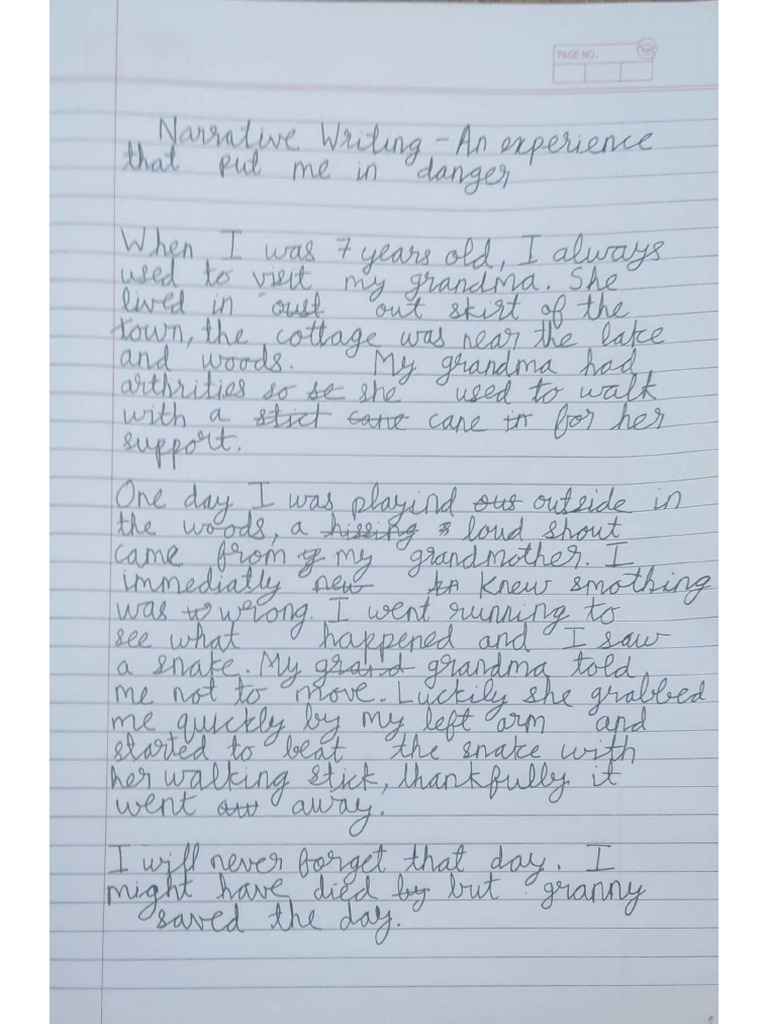 PAGE NO.:
Narrative Writing - An experience
that put me in danger
When I was 7 years old, I always
used to visit my grandma. She
lived in oust out skirt of the
town, the cottage was near the lake
and woods. My grandma had
arthrities so se she used to walk
with a stict cane cane in for her
support.
One day I was playind ous outside in
the woods, a hissing s loud shout
came from g my grandmother. I
immediatly new kn knew smothing
was w wrong. I went running to
see what happened and I saw
a snake. My grand grandma told
me not to move. Luckily she grabbed
me quickly by my left arm and
started to beat the snake with
her walking stick, thankfully it
went aw away.
I will never forget that day. I
might have died by but granny
saved the day.